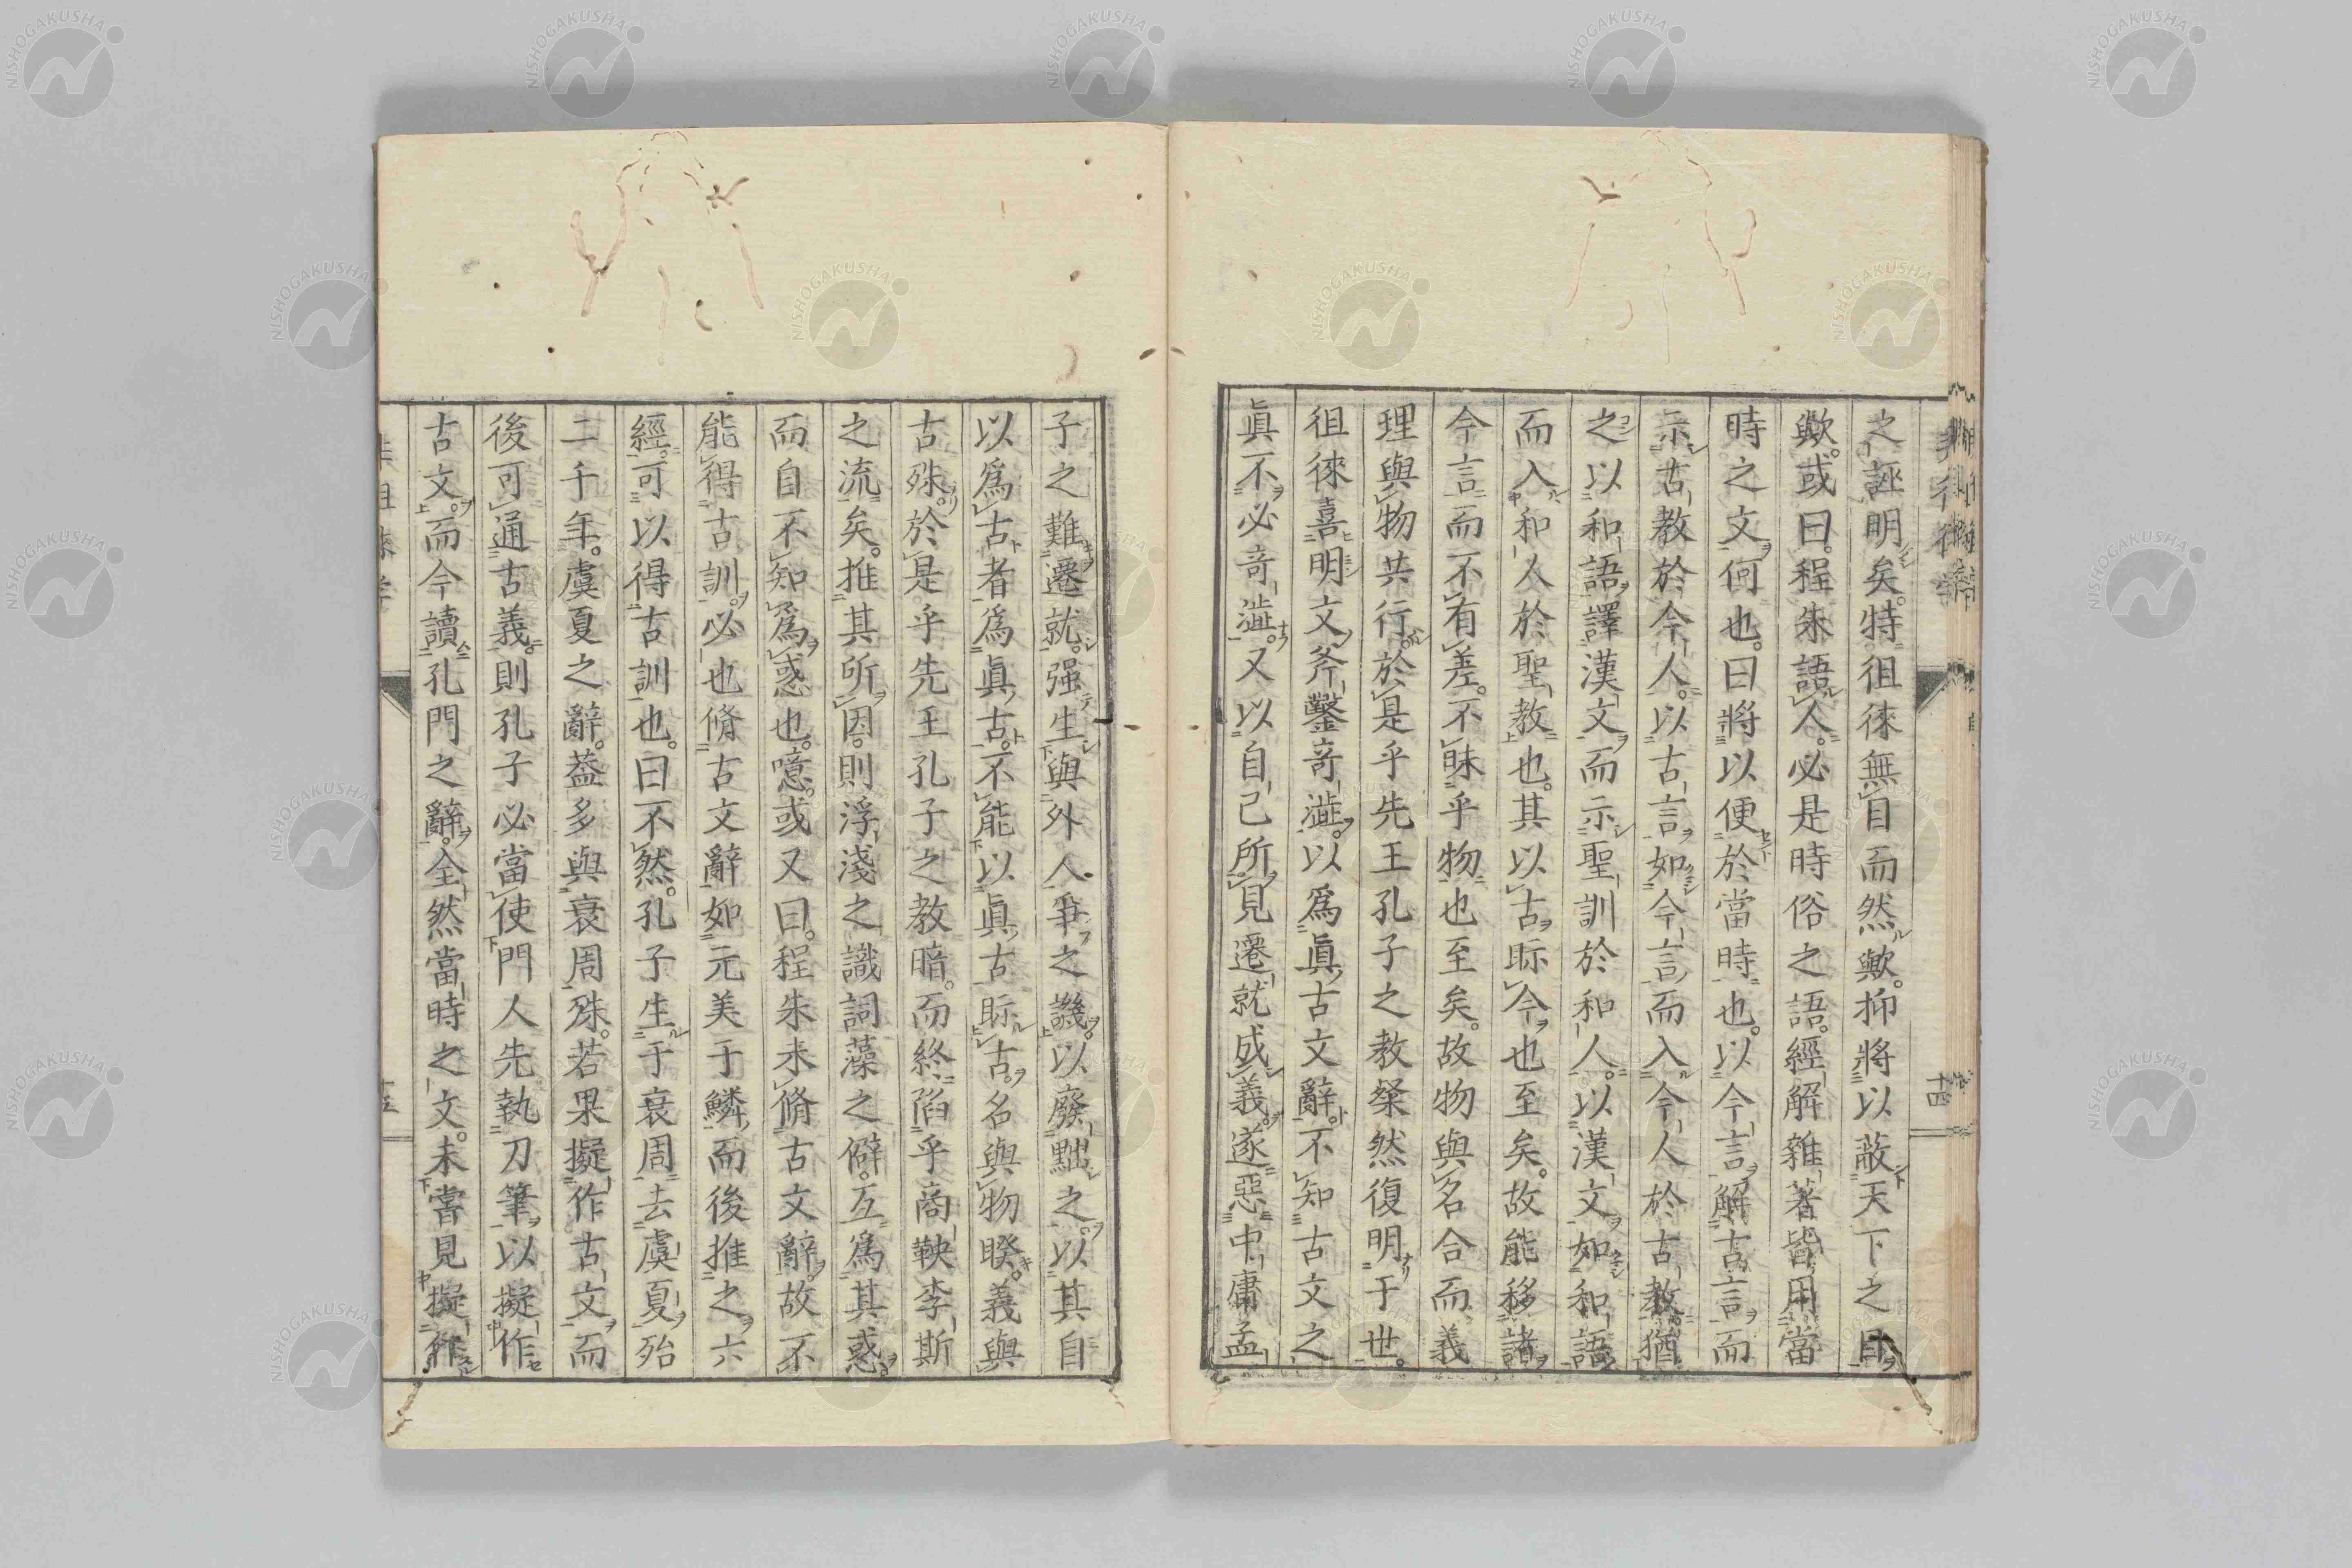 之誣明矣。特徂徠無自而然歟。抑將以蔽天下之目
歟。或曰。程朱語人。必是時俗之語。經解雜著皆用當
時之文何也。曰將以便於當時也。以今言解古言而
示古教於今人。以古言如今言而入今人於古教。猶
之以和語譯漢文而示聖訓於和人。以漢文如和語
而入和人於聖教也。其以古眎今也至矣。故能移諸
今言而不有差。不昧乎物也至矣。故物與名合而義
理與物共行。於是乎先王孔子之教粲然復明于世。
徂徠喜明文斧鑿奇澁。以爲眞古文辭。不知古文之
眞不必奇澁。又以自己所見遷就成義。遂惡中庸孟
十四
子之難遷就。强生與外人爭之譏。以廢黜之。以其自
以爲古者爲眞古。不能以眞古眎古。名與物睽。義與
古殊。於是乎先王孔子之教暗。而終陷乎商鞅李斯
之流矣。推其所因。則浮淺之識詞藻之僻。互爲其惑
而自不知爲惑也。噫。或又曰。程朱未脩古文辭。故不
能得古訓。必也脩古文辭如元美于鱗而後推之六
經。可以得古訓也。曰不然。孔子生于衰周去虞夏殆
二千年。虞夏之辭。蓋多與衰周殊。若果擬作古文而
後可通古義。則孔子必當使門人先執刀筆以擬作
古文。而今讀孔門之辭。全然當時之文。未嘗見擬作